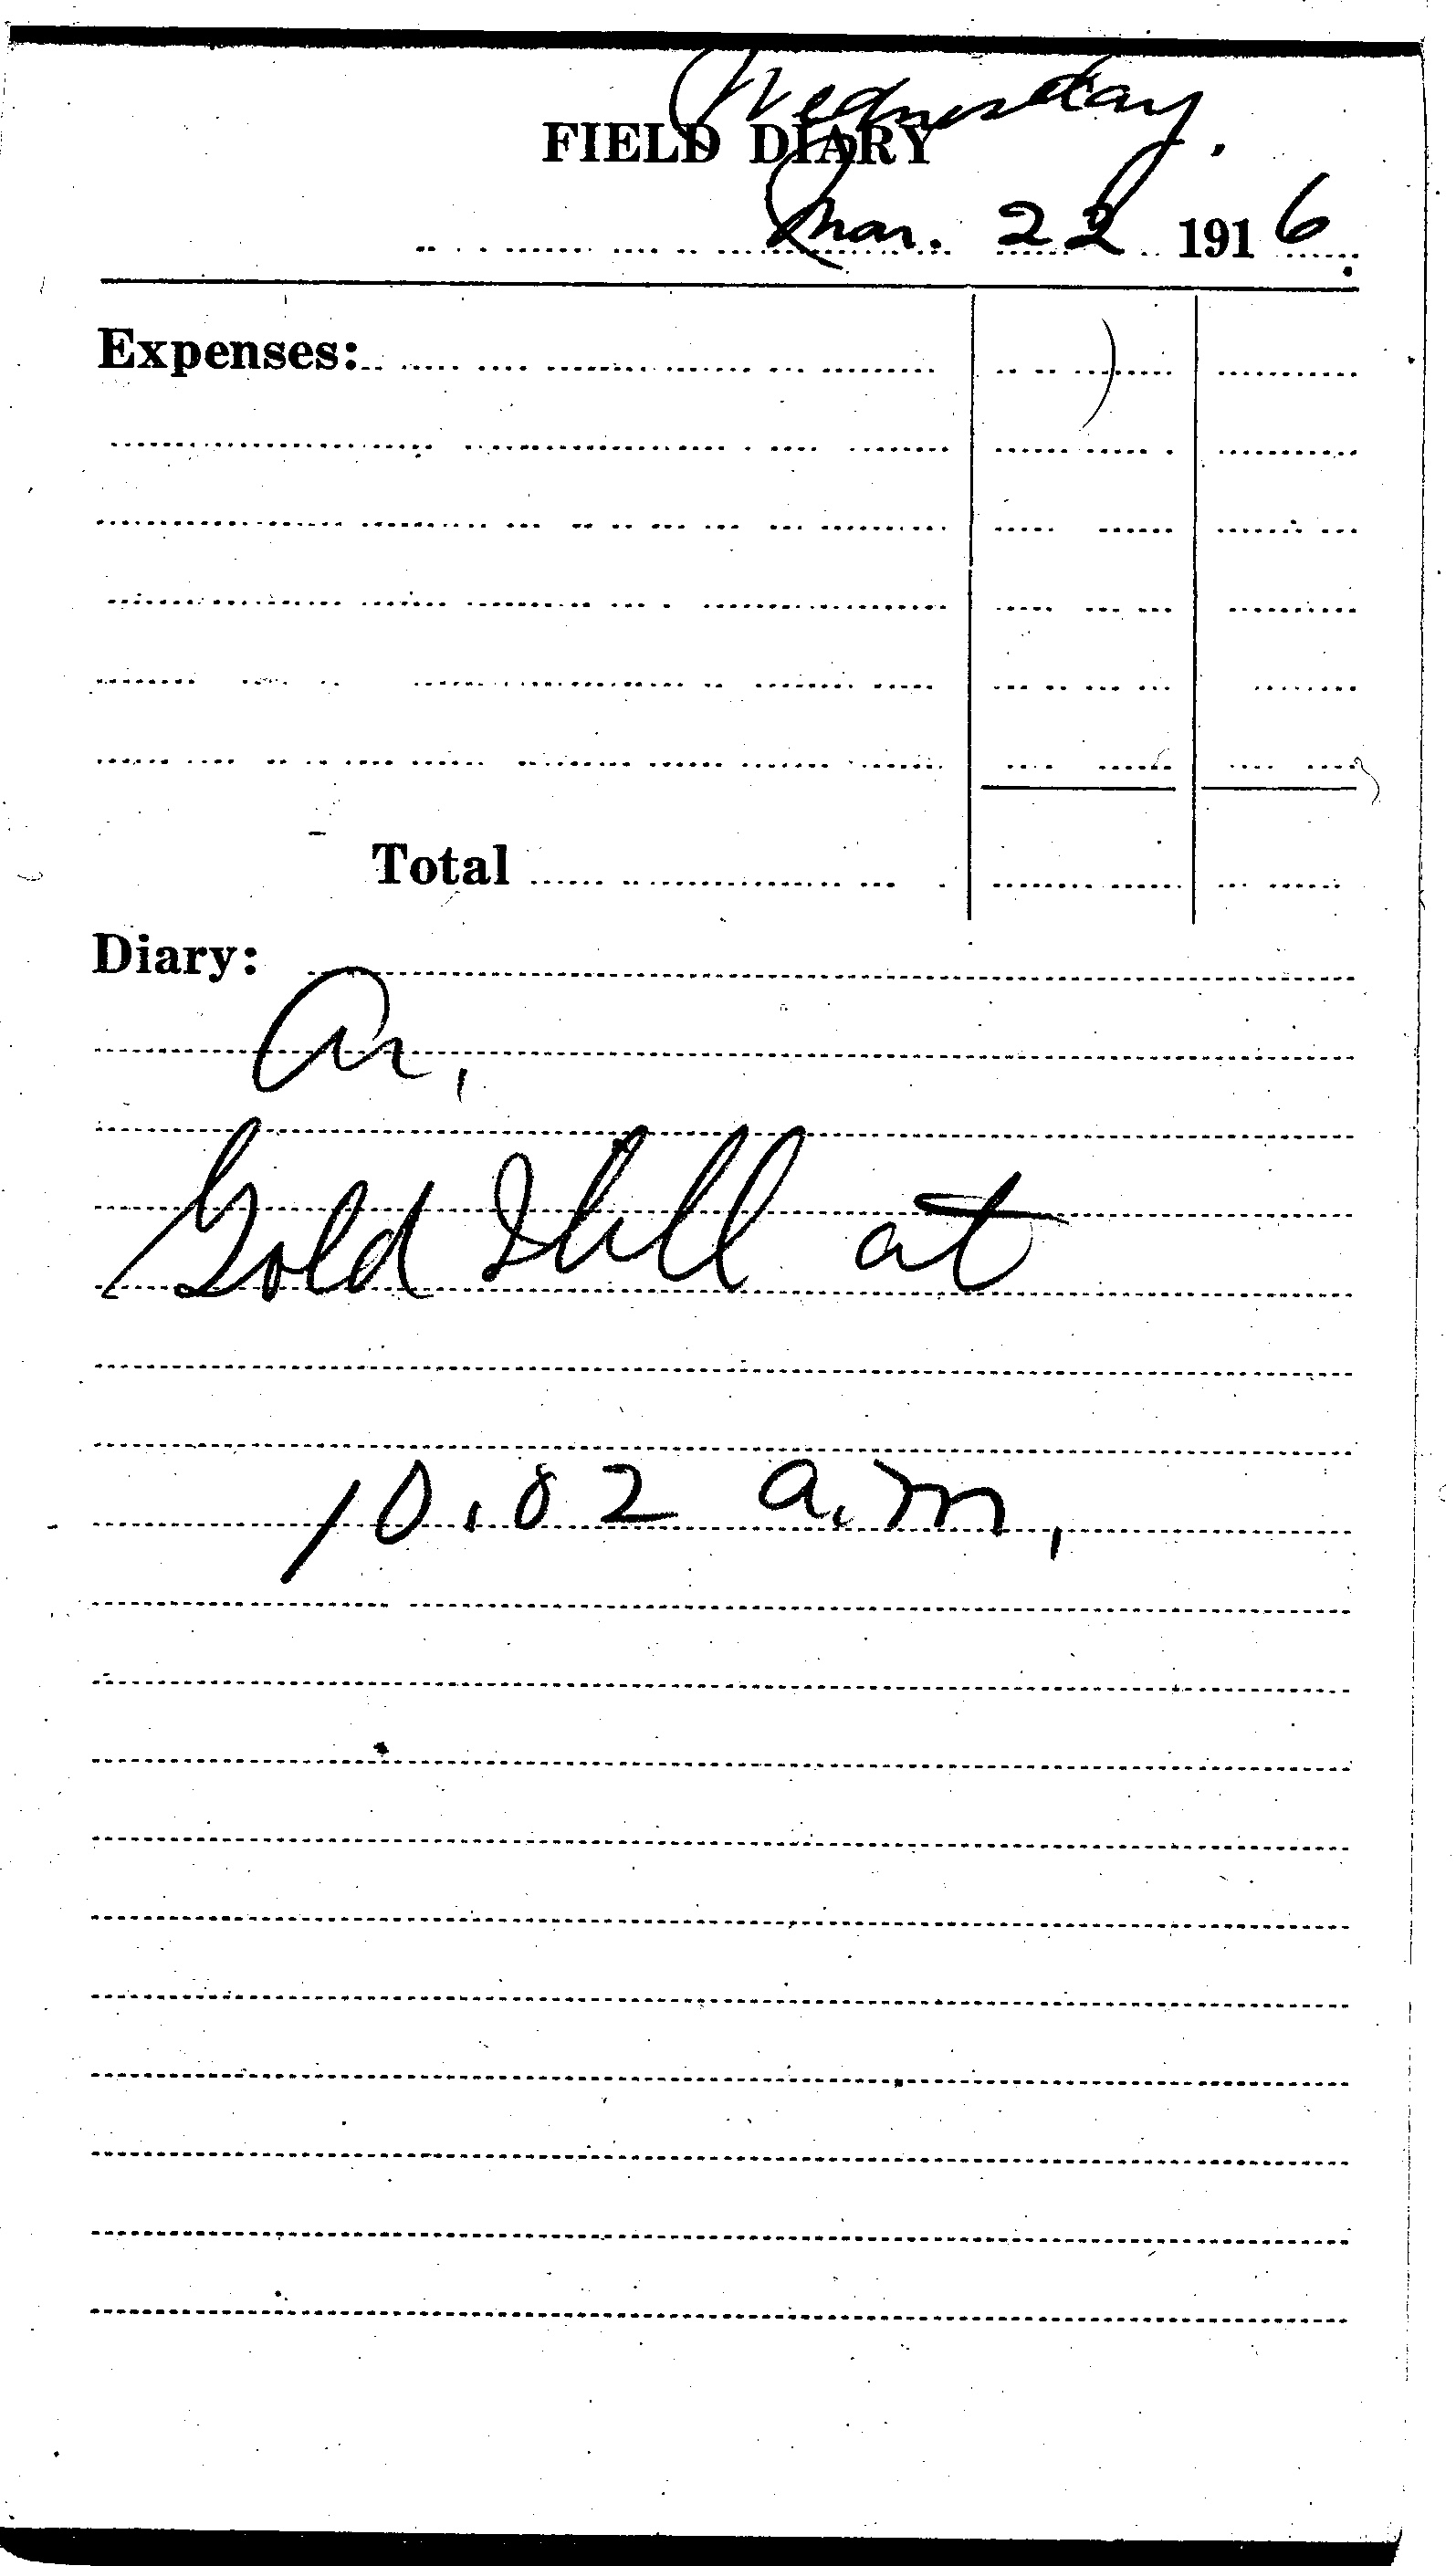 Wednesday.
FIELD DIARY
Mar. 22 1916.
Expenses:
Total
Diary:
Ar,
Gold Hill at
10.02 a.m,